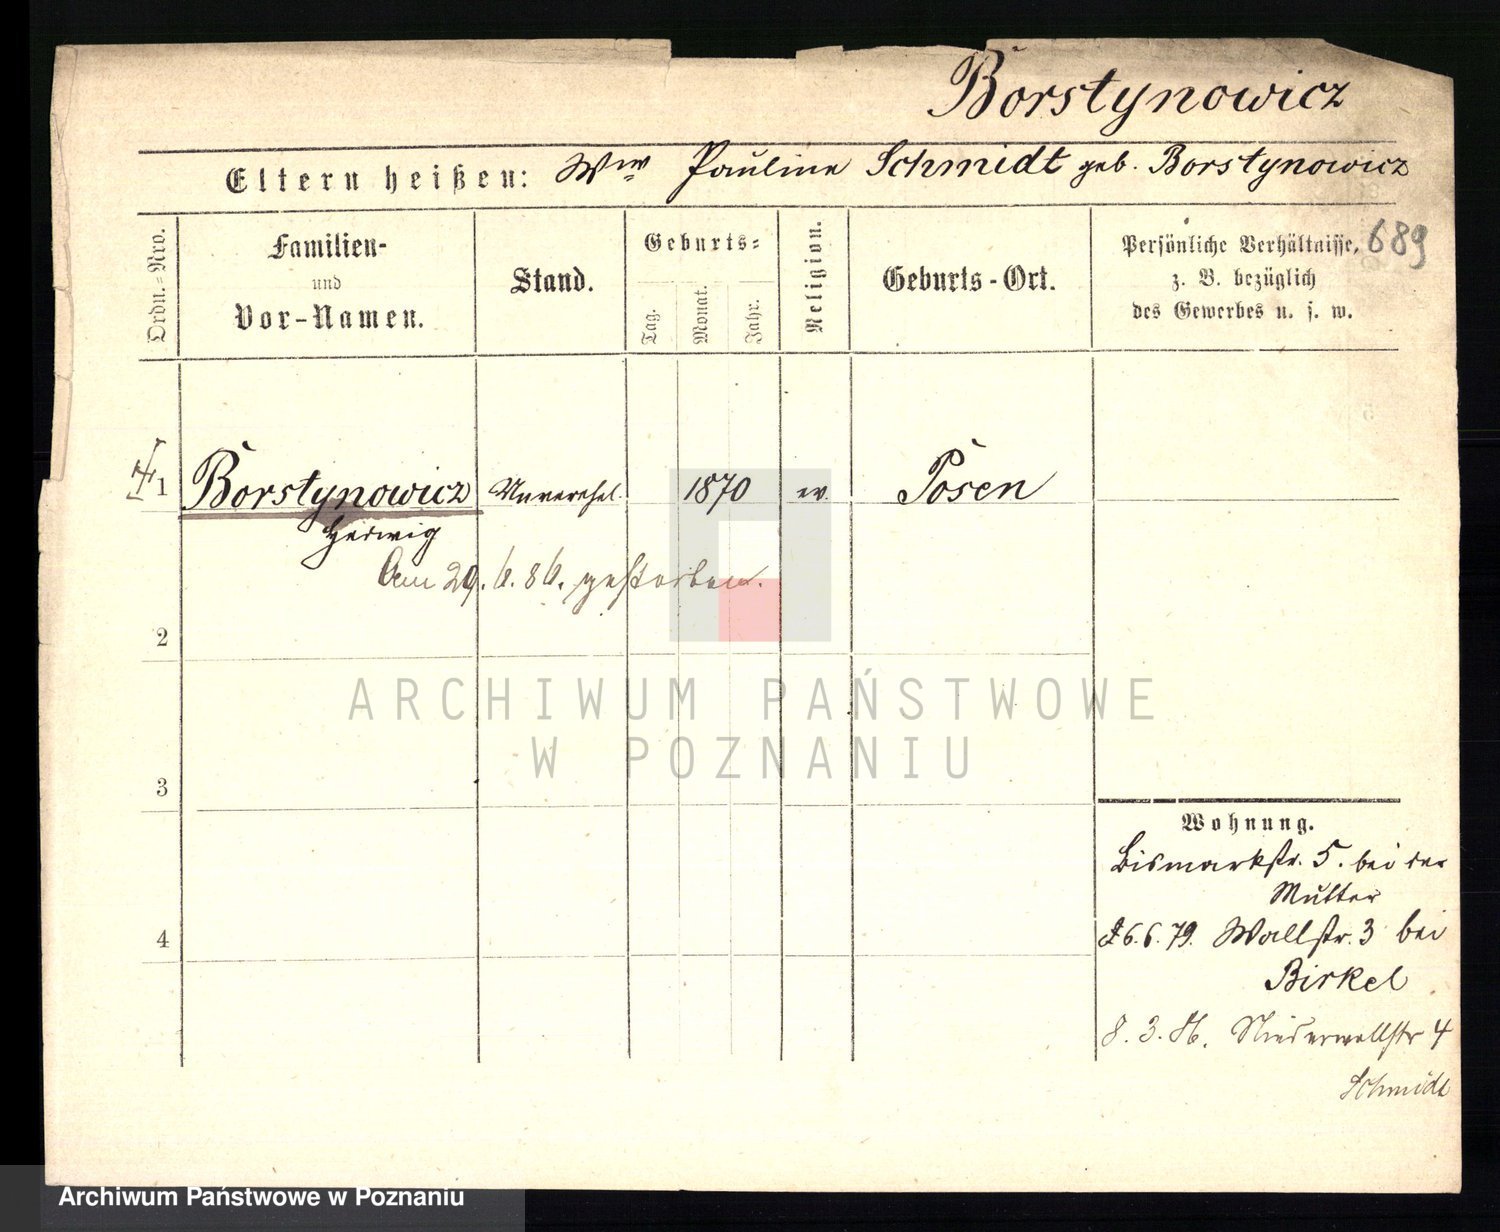 Borstynowicz
Eltern heißen: Wwe Pauline Schmidt geb. Borstynowicz
689
Ordn.-Nro.
Familien-
und
Vor-Namen.
Stand.
Geburts-
Tag.
Monat.
Jahr.
Religion.
Geburts-Ort.
Persönliche Verhältnisse,
z. B. bezüglich
des Gewerbes u. s. w.
1 Borstynowicz Unverehel. 1870 ev. Posen
Hedwig
Am 29. 6. 86. gestorben.
2
ARCHIWUM PAŃSTWOWE
W POZNANIU
3
Wohnung.
Bismarkstr. 5. bei der
Mutter
4
26.6.79. Wallstr. 3 bei
Birkel
8. 3. 86. Niederwallstr 4
Schmidt
Archiwum Państwowe w Poznaniu